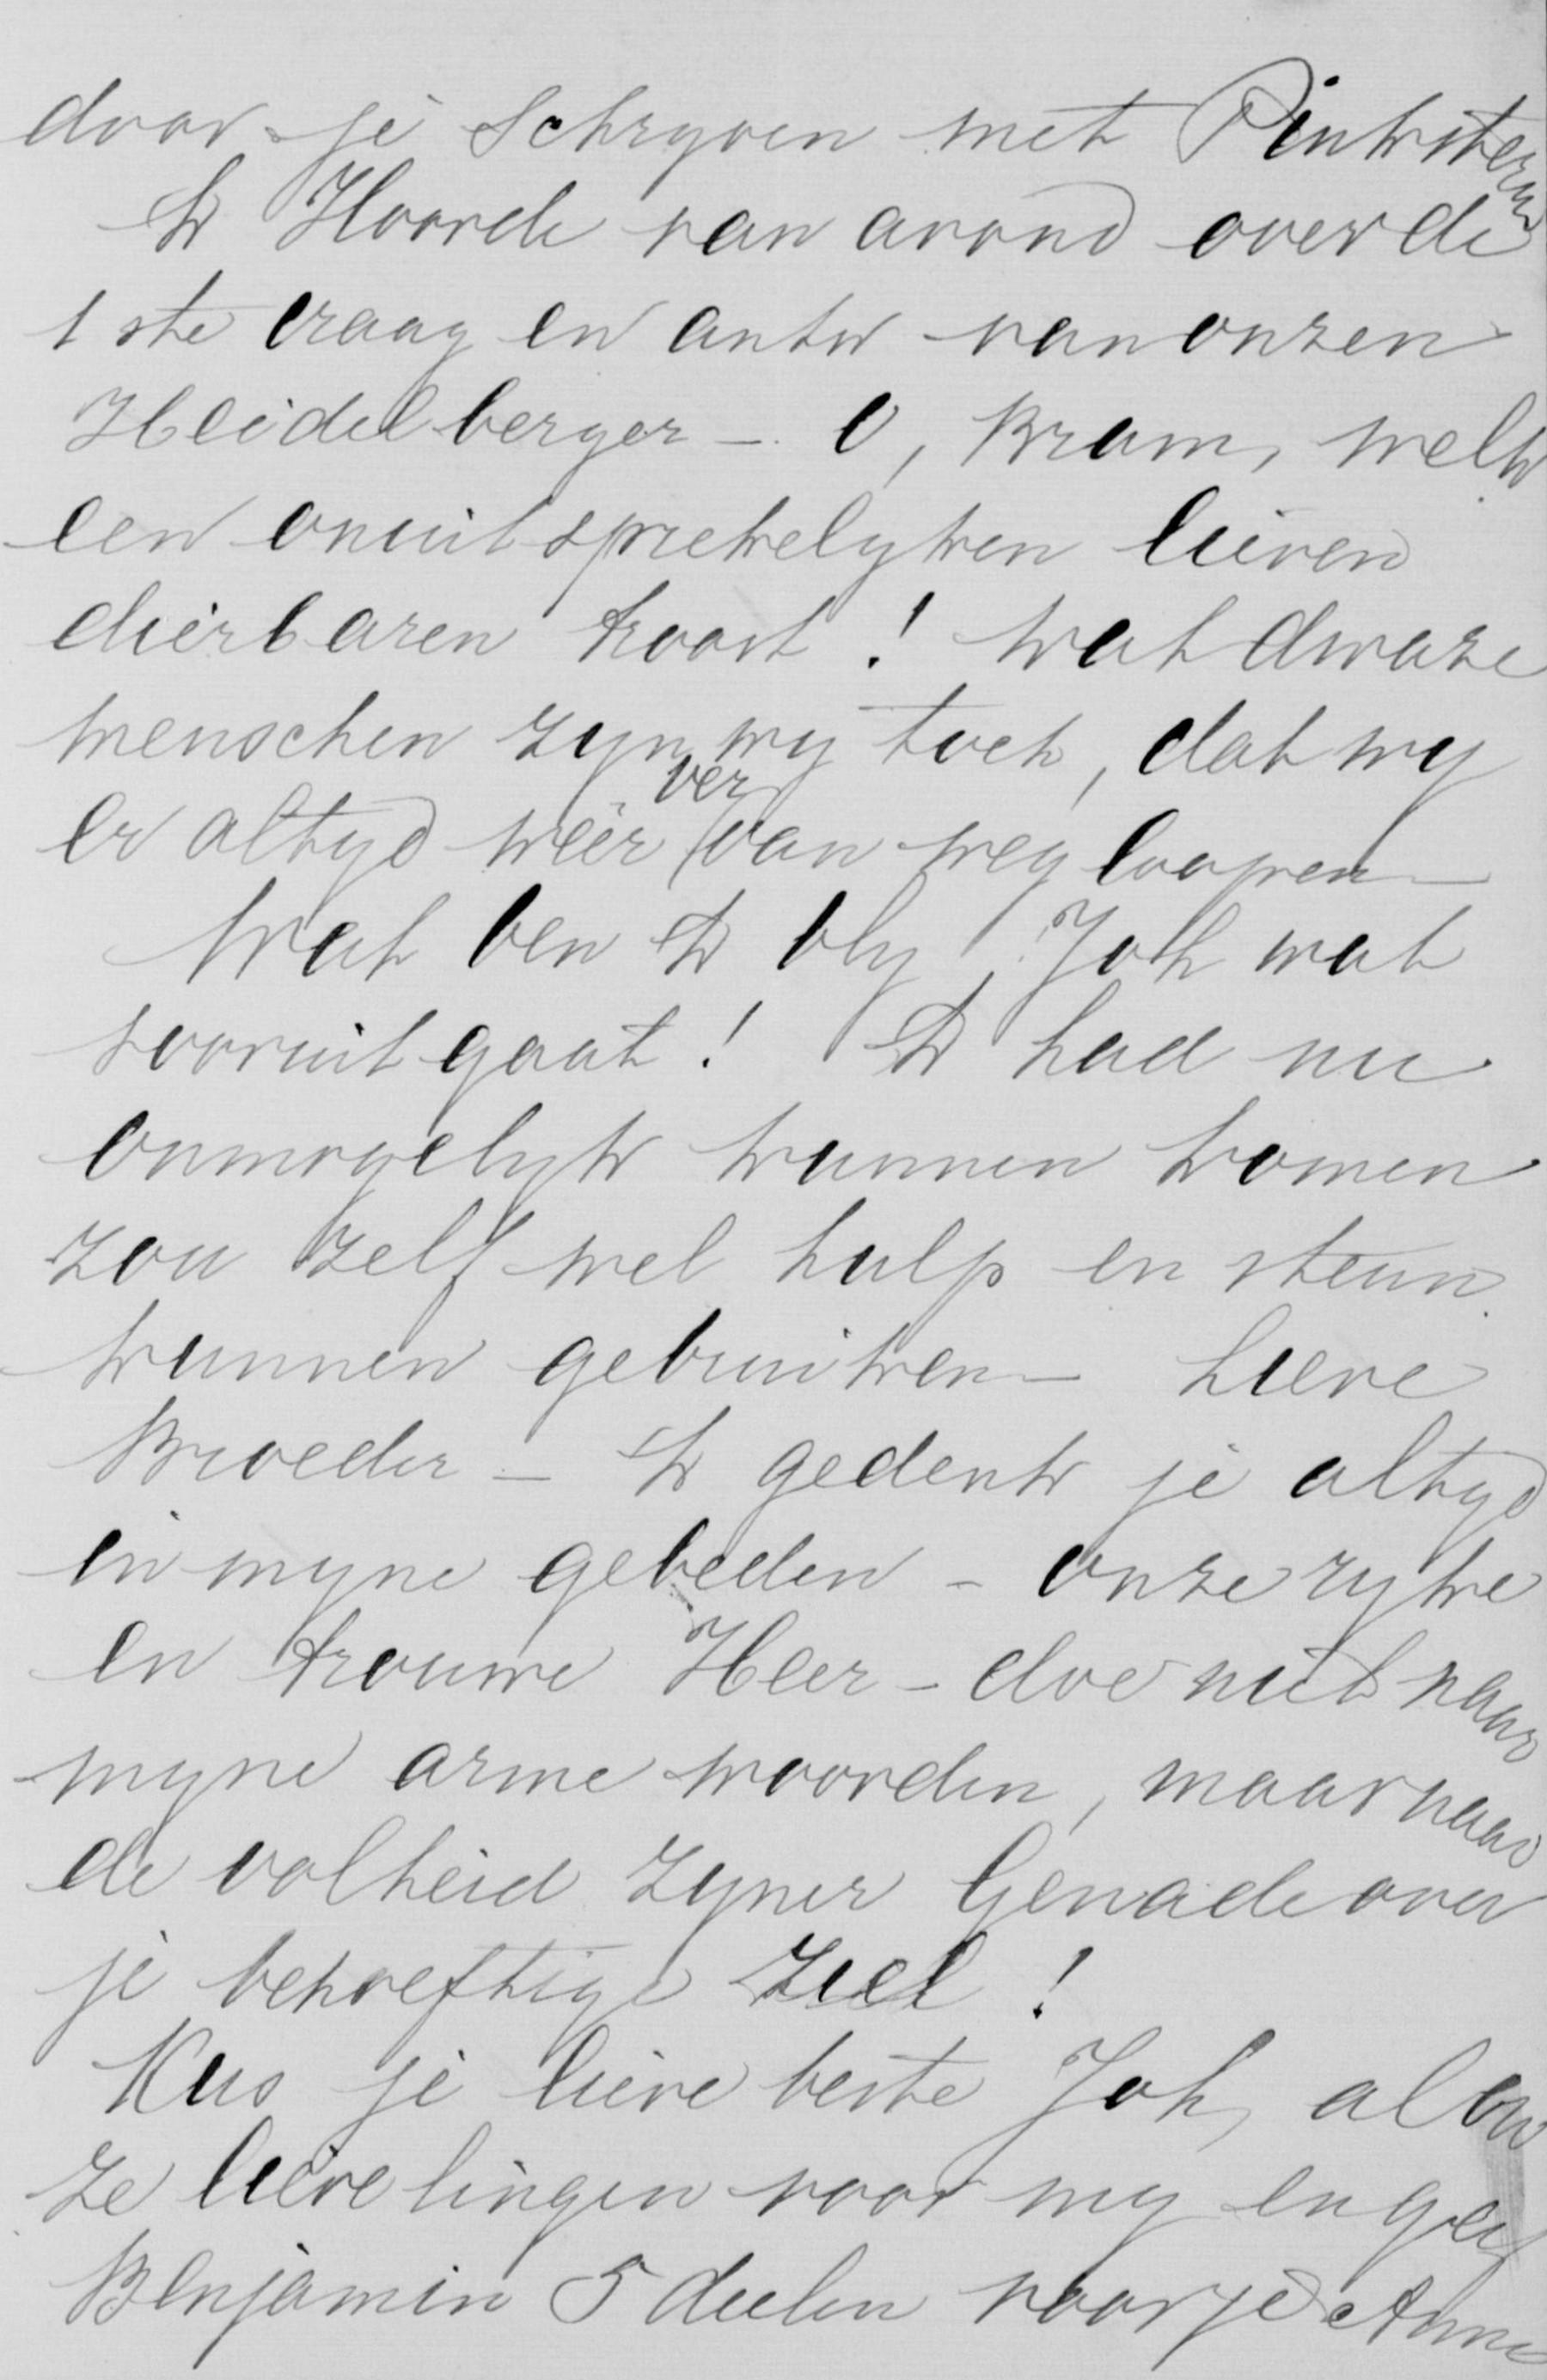 door je schryven met Pinksteren
Ik Hoorde van avond over de
1ste vraag en antw van onzen
Heidelberger – O, Bram, welk
een onuitsprekelyken lieven
dierbaren troost! Wat dwaze
menschen zyn wy toch, dat wy
er altyd wéér ver van weg loopen –
Wat ben ik bly, Joh wat
vooruit gaat! Ik had nu
onmogelyk kunnen komen
zou zelf wel hulp en steun
kunnen gebruiken – Lieve
Broeder – Ik gedenk je altyd
in myne gebeden – onze ryke
en trouwe Heer – doe niet naar
myne arme woorden, maar naar
de volheid Zyner Genade over
je behoeftige ziel!
Kus je lieve beste Joh, al on
ze lievelingen voor my en geef
Benjamin 5 deelen voor je Anna